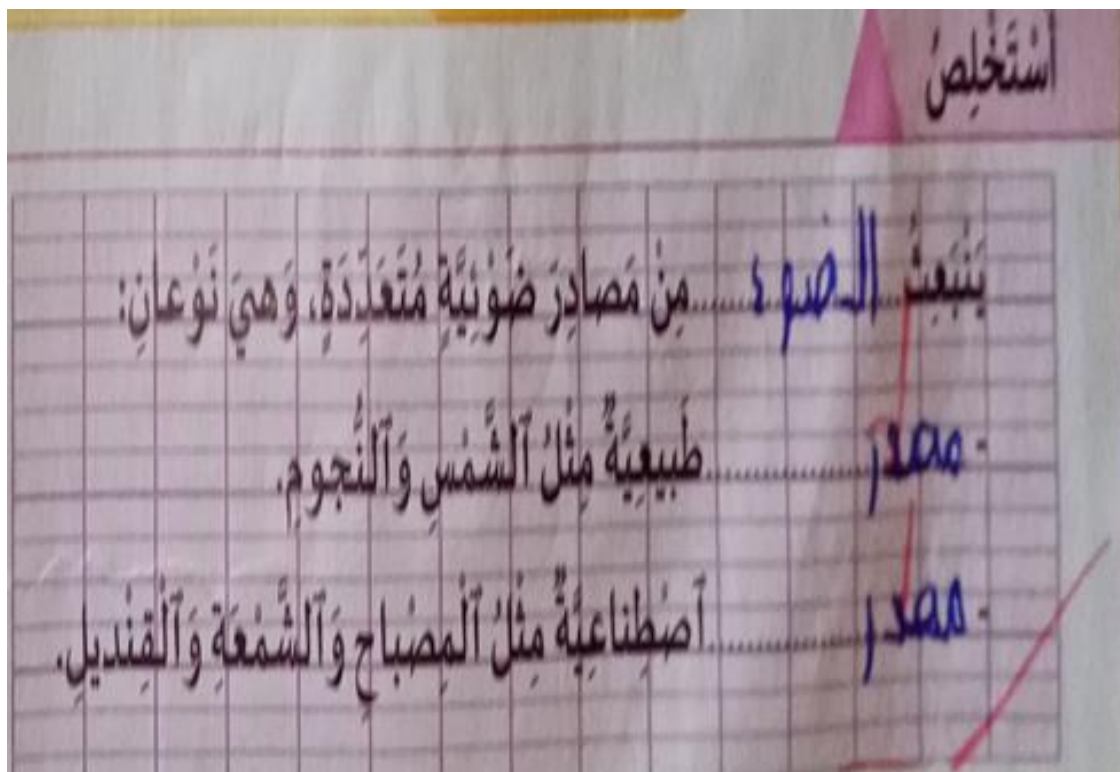 أَسْتَخْلِصُ
يَنْبَعِثُ الضوء مِنْ مَصادِرَ ضَوْئِيَّةٍ مُتَعَدِّدَةٍ، وَهِيَ نَوْعانِ:
- مصدر طَبِيعِيَّةٌ مِثْلُ ٱلشَّمْسِ وَٱلنُّجومِ.
- مصدر ٱصْطِناعِيَّةٌ مِثْلُ ٱلْمِصْباحِ وَٱلشَّمْعَةِ وَٱلْقِنْديلِ.